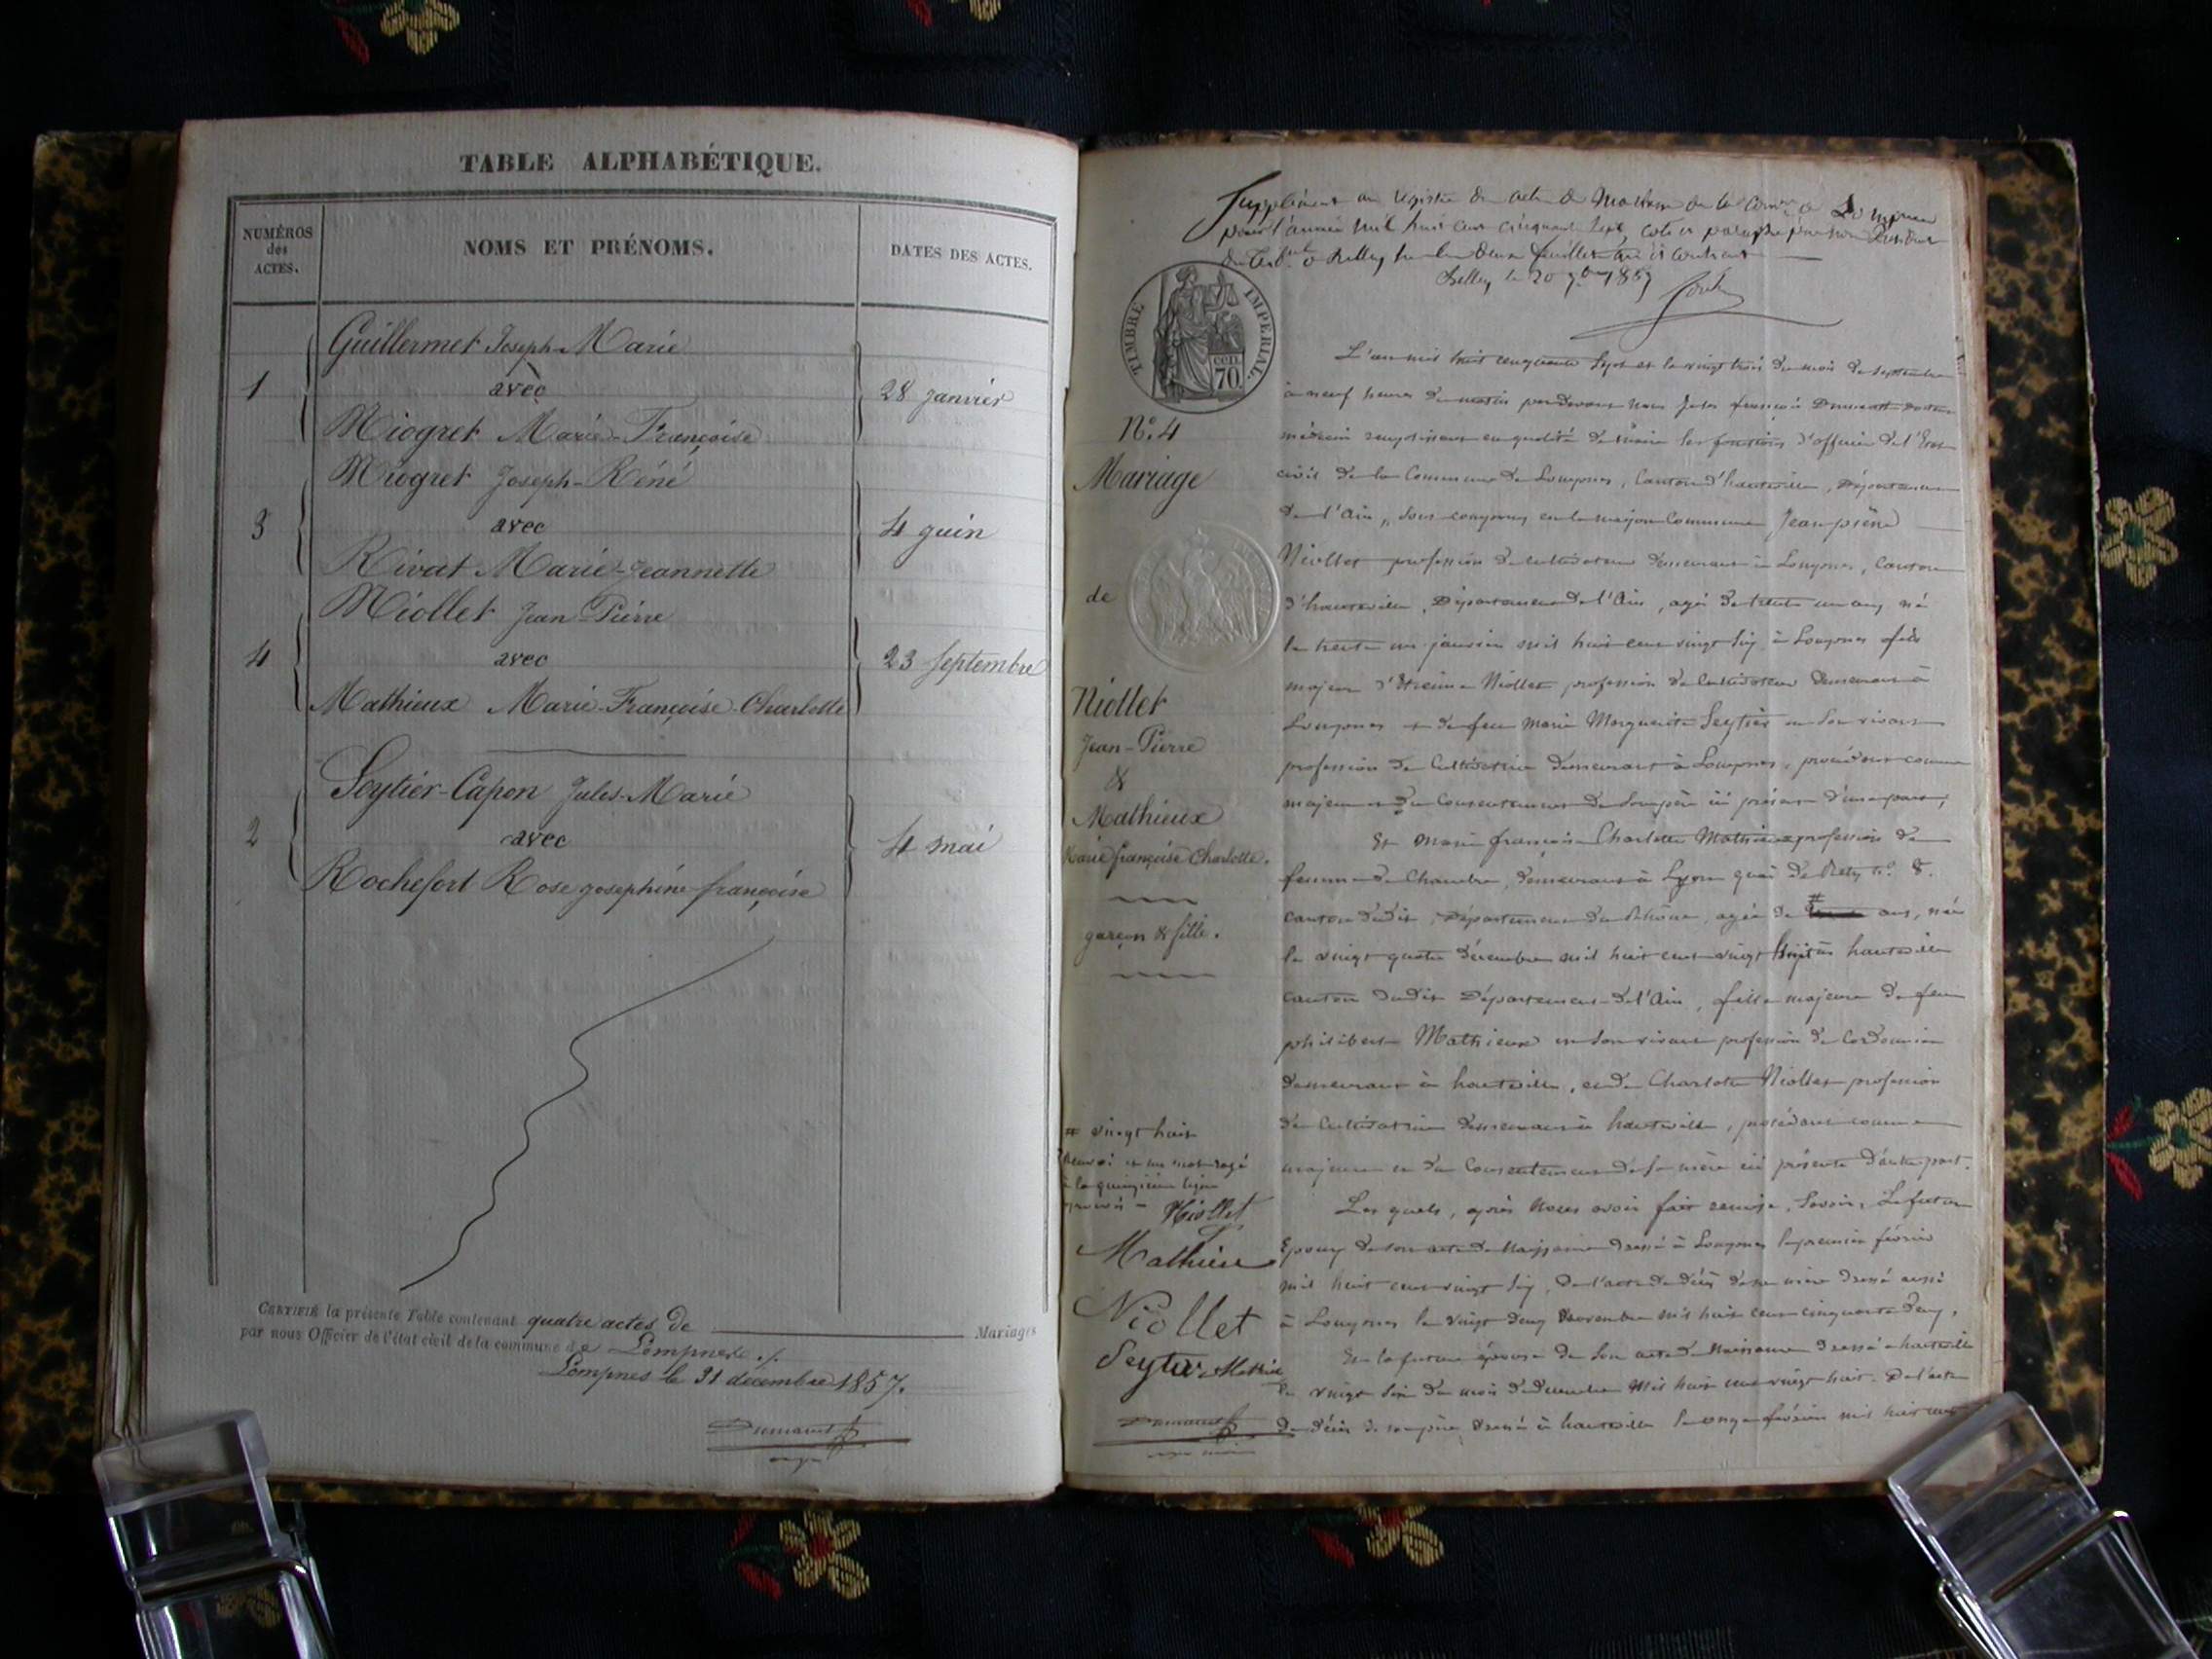 TABLE ALPHABÉTIQUE.
NUMÉROS des ACTES.
NOMS ET PRÉNOMS.
DATES DES ACTES.
Guillermet Joseph-Marie
1 avec 28 janvier
Miogret Marie-Françoise
Miogret Joseph-Réné
3 avec 4 guin
Rivat Marie-Jeannette
Niollet Jean Pierre
4 avec 23 septembre
Mathieux Marie-Françoise-Charlotte
Seytier-Capon Jules-Marie
2 avec 4 mai
Rochefort Rose gosephine françoise
CERTIFIÉ la présente Table contenant quatre actes de Mariages
par nous Officier de l'état civil de la commune de Lompnes ./.
Lompnes le 31 décembre 1857.
Dumarest
Supplément au registre de acte de de la Comne de Lompnes
pour l'année mil huit cent cinquante sept, coté et paraphé par nous Président
du Tribal de Belley sur les deux feuillets
Belley le 20 7bre 1857
TIMBRE IMPERIAL.
CEN. 70
N°. 4
Mariage
de
Niollet
Jean-Pierre
&
Mathieux
Marie françoise Charlotte.
garçon & fille.
# vingt huit
renvoi et un mot rayé
à la quinzième ligne
Niollet
Mathieu
Niollet
Seytier Mathieu
Dumarest
L'an mil huit cinquante sept et le vingt trois du mois de septembre
à neuf heures du matin par devant nous Jules françois Dumarest docteur
médecin remplissant en qualité de maire les fonctions d'officier de l'Etat
civil de la Commune de Lompnes, Canton d'hauteville, Département
de l'Ain, sont comparus en la maison Commune Jean pierre
Niollet profession de cultivateur demeurant à Lompnes, Canton
d'hauteville, Département de l'Ain, agé de trente un ans, né
le trente un janvier mil huit cent vingt six à Lompnes fils
majeur d'Etienne Niollet profession de Cultivateur demeurant à
Lompnes et de feu Marie Marguerite Seytier en son vivant
profession de Cultivatrice demeurant à Lompnes, procédant comme
majeur et du Consentement de son père ici présent d'une part,
Et Marie françoise Charlotte Mathieux profession de
femme de Chambre, demeurant à Lyon quai de Retz n°. 8.
canton dudit, Département du Rhône, agée de # ans, née
le vingt quatre décembre mil huit cent vingt huit à hauteville
canton dudit Département de l'Ain, fille majeure de feu
philibert Mathieux en son vivant profession de Cordonnier
demeurant à hauteville, et de Charlotte Niollet profession
de Cultivatrice demeurant à hauteville, procédant comme
majeure et du Consentement de sa mère ici présente d'autre part.
Les quels, après Nous avoir fait remise, Savoir, Le futur
Epoux de son acte de Naissance dressé à Lompnes le premier février
mil huit cent vingt six, De l'acte de décès de sa mère dressé aussi
à Lompnes le vingt deux Novembre mil huit cent cinquante deux,
Et la future épouse de son acte de Naissance dressé à hauteville
le vingt six du mois de décembre Mil huit cent vingt huit. De l'acte
de décès de son père dressé à hauteville le onze février mil huit cent